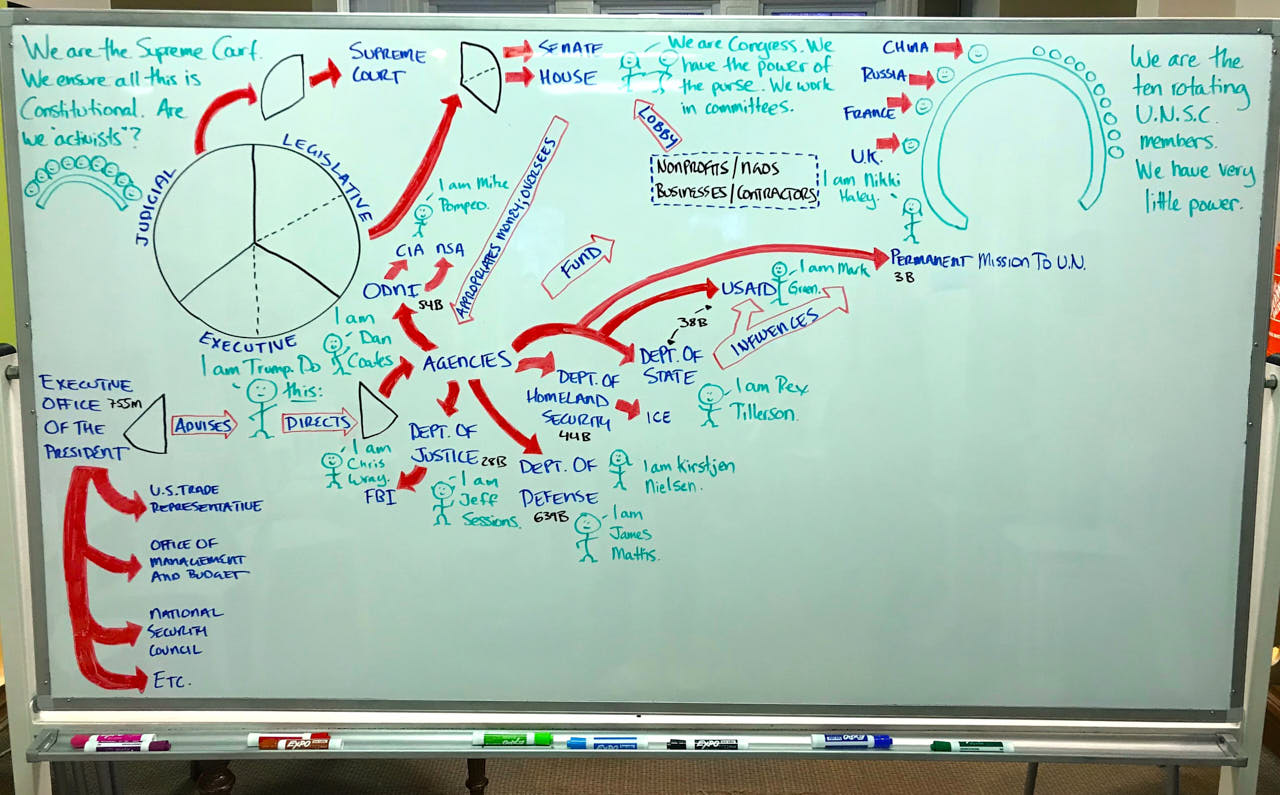 We are the Supreme Court.
We ensure all this is
Constitutional. Are
we "activists"?
SUPREME
COURT
SENATE
HOUSE
We are Congress. We
have the power of
the purse. We work
in committees.
LOBBY
NONPROFITS/NGOS
BUSINESSES/CONTRACTORS
CHINA
RUSSIA
FRANCE
U.K.
I am Nikki
Haley.
We are the
ten rotating
U.N.S.C.
members.
We have very
little power.
PERMANENT MISSION TO U.N.
3B
JUDICIAL
LEGISLATIVE
EXECUTIVE
I am Mike
Pompeo.
CIA NSA
ODNI
54B
APPROPRIATES MONEY; OVERSEES
FUND
USAID
I am Mark
Green.
38B
INFLUENCES
I am
Dan
Coates
AGENCIES
DEPT. OF
STATE
I am Rex
Tillerson.
DEPT. OF
HOMELAND
SECURITY
44B
ICE
I am Trump. Do
this:
EXECUTIVE
OFFICE 755M
OF THE
PRESIDENT
ADVISES
DIRECTS
DEPT. OF
JUSTICE 28B
FBI
I am
Chris
Wray.
I am
Jeff
Sessions.
DEPT. OF
DEFENSE
639B
I am Kirstjen
Nielsen.
I am
James
Mattis.
U.S. TRADE
REPRESENTATIVE
OFFICE OF
MANAGEMENT
AND BUDGET
NATIONAL
SECURITY
COUNCIL
ETC.
EXPO
EXPO
EXPO